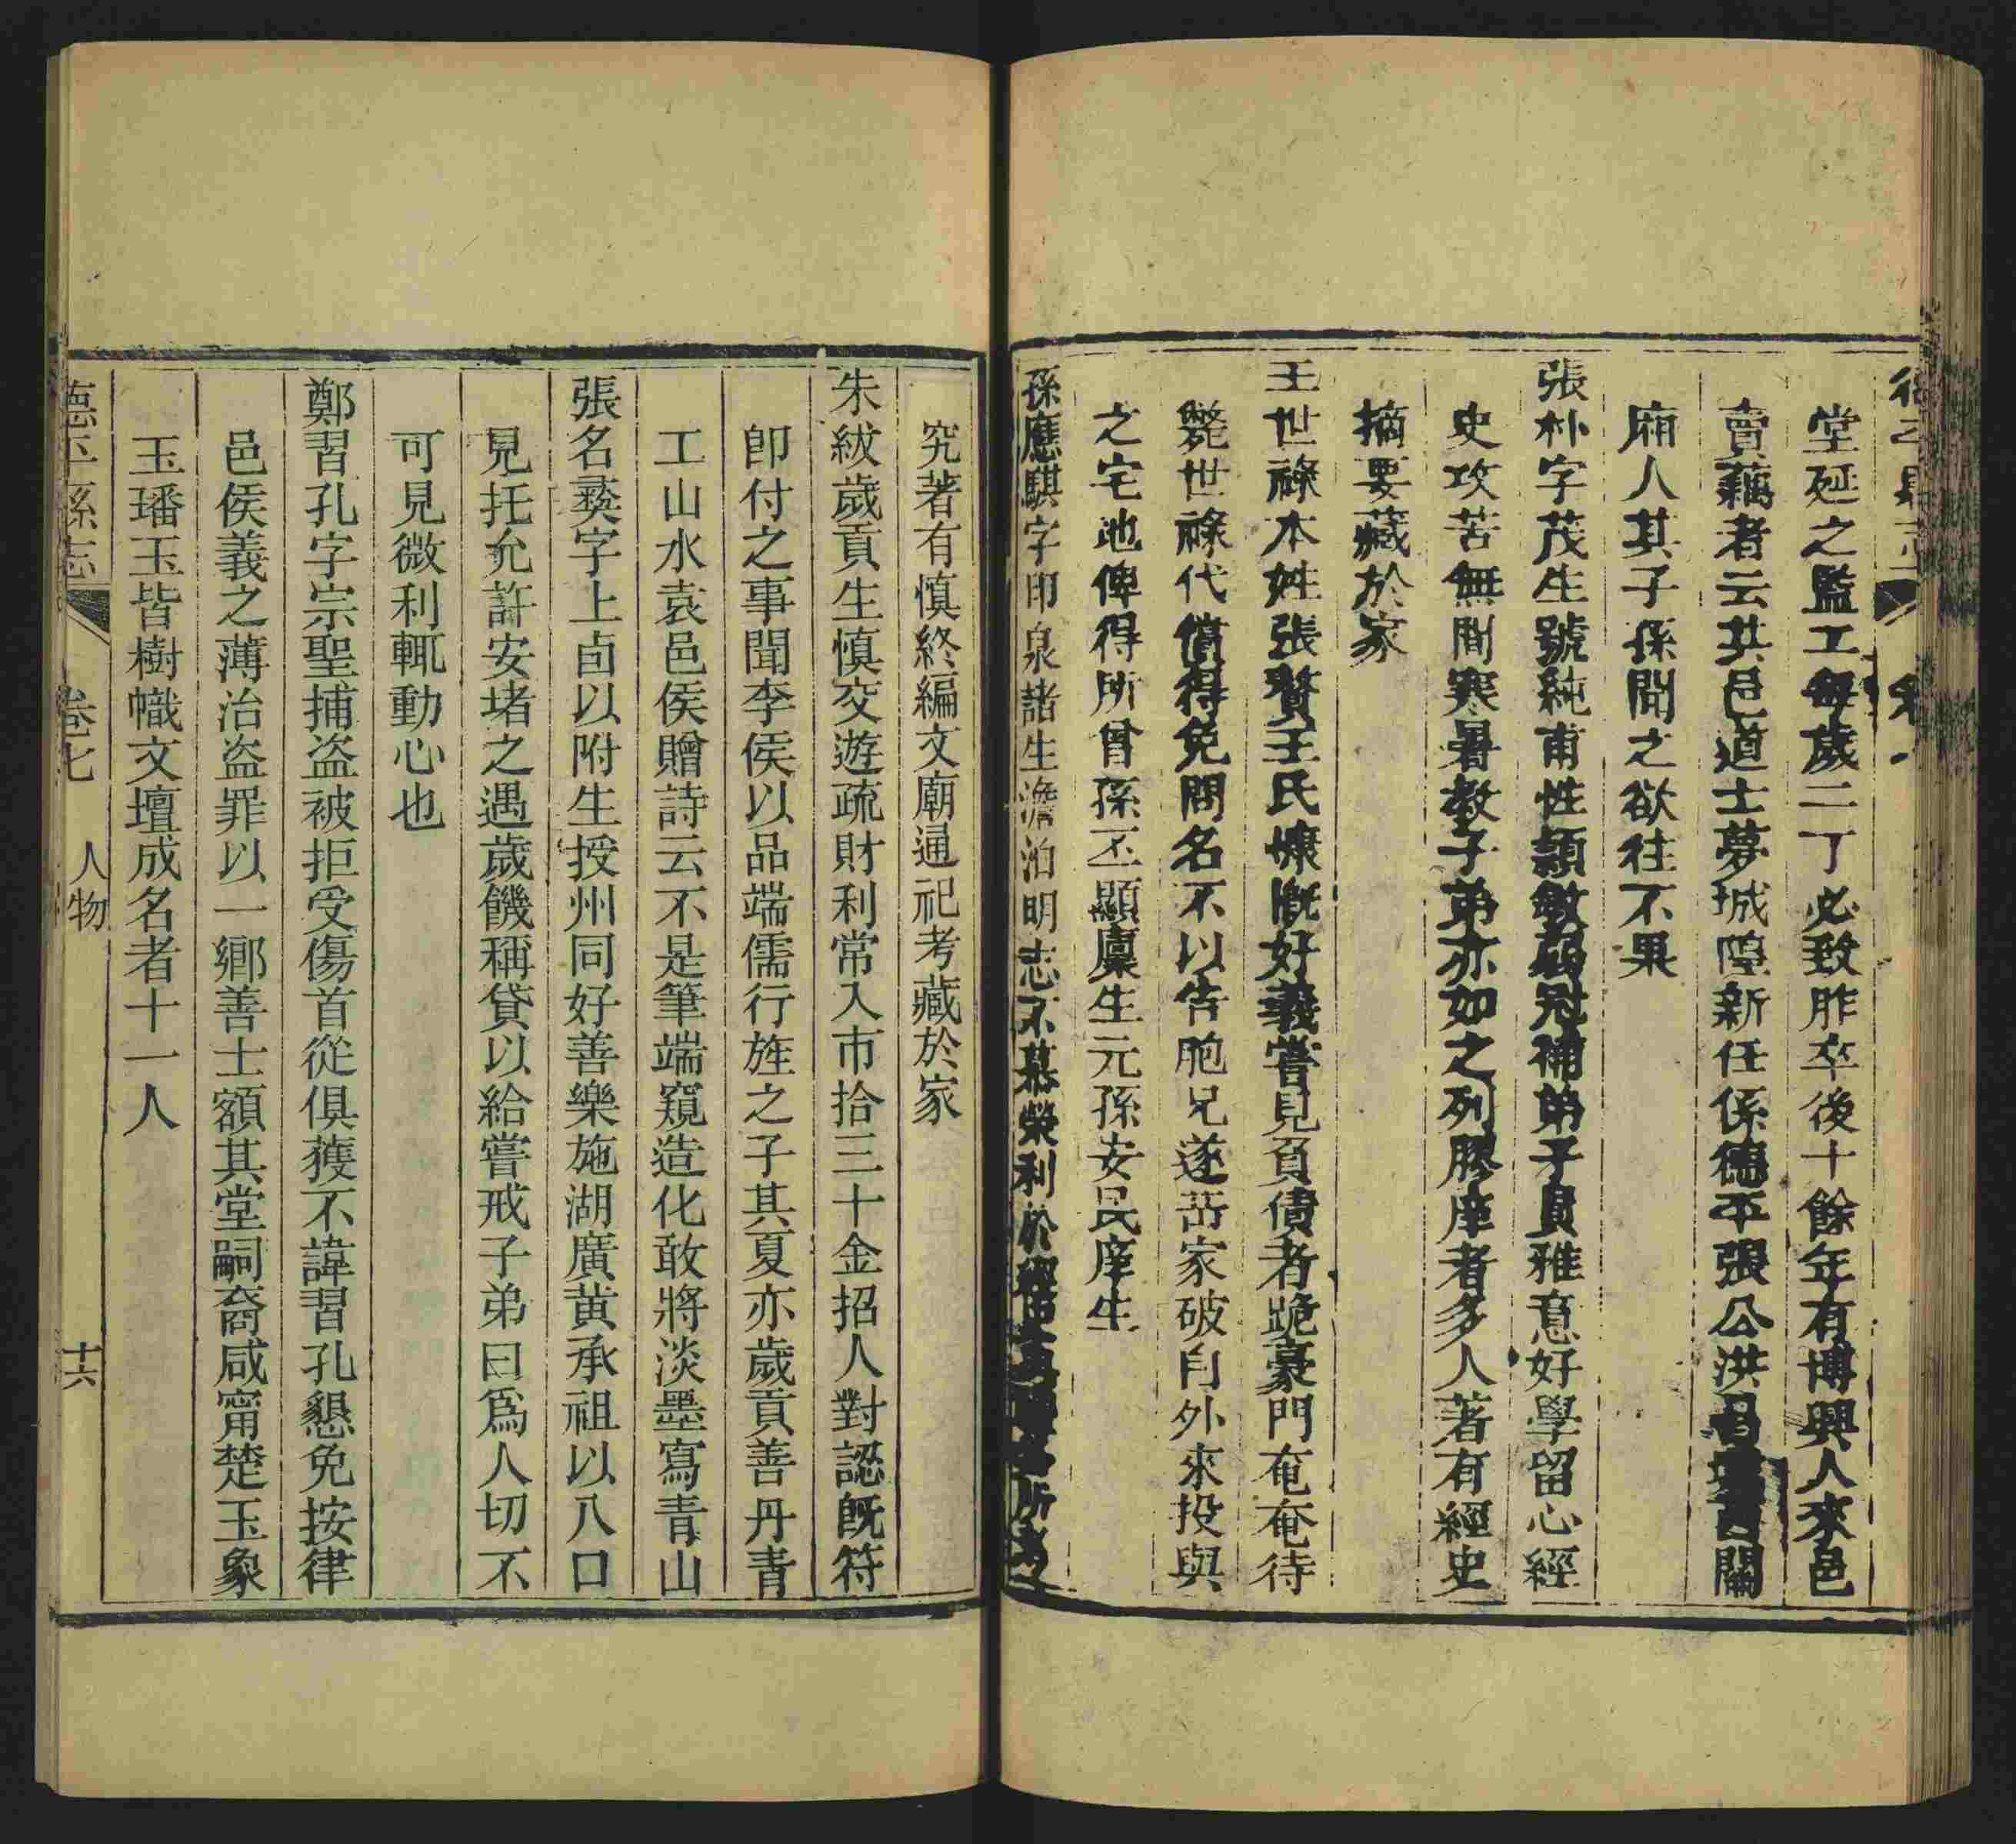 堂延之監工每歲二丁必致胙卒後十餘年有博興人來邑
賣藕者云其邑道士夢城隍新任係德平張公洪西關
廂人其子孫聞之欲往不果
張朴字茂生號純甫性穎敏弱冠補弟子員雅意好學留心經
史攻苦無間寒暑教子弟亦如之列膠庠者多人著有經史
摘要藏於家
王世祿本姓張贅王氏慷慨好義嘗見負債者跪豪門奄奄待
斃世祿代償得免問名不以告胞兄遂岳家破自外來投與
之宅地俾得所曾孫丕顯廩生元孫安民庠生
孫應騏字印泉諸生澹泊明志不慕榮利於所
究著有慎終編文廟通祀考藏於家
朱紱歲貢生慎交遊疏財利常入市拾三十金招人對認既符
卽付之事聞李侯以品端儒行旌之子其夏亦歲貢善丹青
工山水袁邑侯贈詩云不是筆端窺造化敢將淡墨寫青山
張名彝字上卣以附生授州同好善樂施湖廣黄承祖以八口
見托允許安堵之遇歲饑稱貸以給嘗戒子弟曰爲人切不
可見微利輒動心也
鄭習孔字宗聖捕盜被拒受傷首從俱獲不諱習孔懇免按律
邑侯義之薄治盜罪以一鄉善士額其堂嗣裔咸甯楚玉象
玉璠玉皆樹幟文壇成名者十一人
德平縣志 卷七 人物 十六